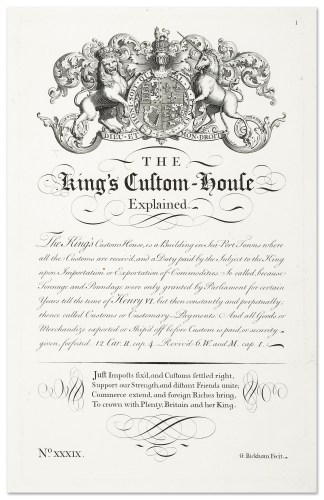 1
HONI SOIT QUI MAL Y PENSE
DIEU ET MON DROIT
THE
King's Custom-House
Explained.
The King's Custom House, is a Building in Sea Port Towns where
all the Customs are received, and a Duty paid by the Subject to the King
upon Importatn. or Exportation of Commodities. So called, because
Tonnage and Poundage were only granted by Parliament for certain
Years till the time of Henry VI. but then constantly and perpetually;
thence called Customs or Customary Payments. And all Goods or
Merchandize exported or Ship'd off before Custom is paid, or security
given, forfeited. 12 Car. II. cap. 4. Reviv'd 6. W. and M. cap. 1.
Just Imposts fixd, and Customs settled right,
Support our Strength, and distant Friends unite;
Commerce extend, and foreign Riches bring,
To crown with Plenty, Britain and her King.
No. XXXIX.
G. Bickham Fecit.